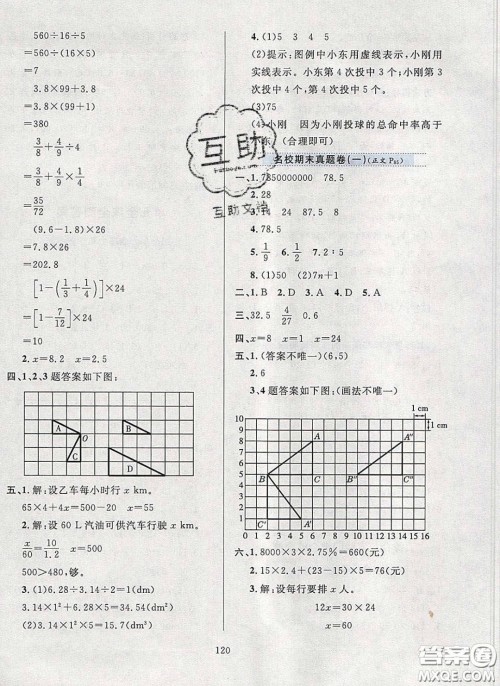 560÷16÷5
=560÷(16×5)
=7
3.8×99+3.8
=3.8×(99+1)
=380
3/8+4/9÷4/5
=3/8+4/9×5/4
=35/72
(9.6-1.8)×26
=7.8×26
=202.8
[1-(1/3+1/4)]×24
=[1-7/12]×24
=10
2.x=8.2 x=2.5
四、1、2、3题答案如下图:
A
O
C
B
D
五、1.解:设乙车每小时行 x km。
65×4+4x=500 x=60
2.解:设 60 L 汽油可供汽车行驶 x km。
x/60=10/1.2 x=500
500>480,够。
3.(1)6.28÷3.14÷2=1(dm)
3.14×1²+6.28×5=34.54(dm²)
(2)3.14×1²×5=15.7(dm³)
4.(1)5 3 4 5
(2)提示:图例中小东用虚线表示,小刚用
实线表示。小东第 4 次投中 3 个;小刚第
4 次投中 5 个。
(3)75
(4)小刚 因为小刚投球的总命中率高于
东 (合理即可)
名校期末真题卷(一)
一、1.7850000000 78.5
2.28
3.14 24 87.5 8
4.78.5
5.1/9 6.1/2 7.2∶5
8.(1)50 (2)7n+1
二、1.B 2.D 3.A 4.D
三、32.5 4/27 0.6
四、x=8 x=1 x=24
五、1.(答案不唯一)(6,5)
2.6
3、4 题答案如下:(画法不唯一)
1 cm
1 cm
10
9
8
7
6
5
4
3
2
1
A
A″
B
C
B″
C″
C′
A′
0 1 2 3 4 5 6 7 8 9 10 11 12 13 14 15 16
六、1.8000×3×2.75%=660(元)
2.15×2.4+(23-15)×5=76(元)
3.解:设每行要排 x 人。
12x=30×24
x=60
120
互助
互助文
答案
MXQE.COM